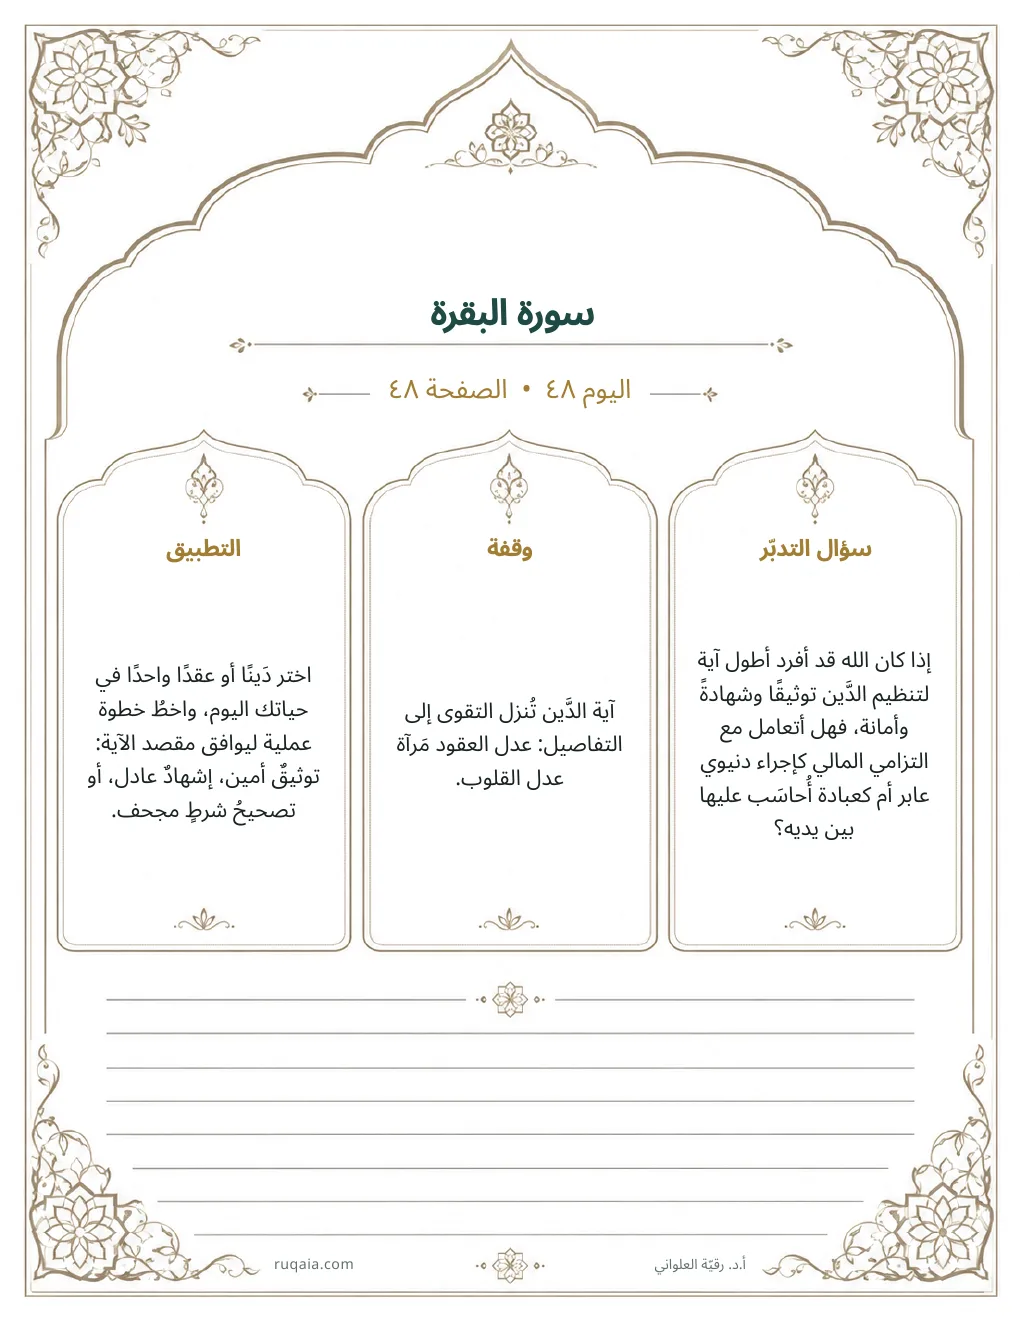 سورة البقرة
اليوم ٤٨ • الصفحة ٤٨
سؤال التدبّر
إذا كان الله قد أفرد أطول آية
لتنظيم الدَّين توثيقًا وشهادةً
وأمانة، فهل أتعامل مع
التزامي المالي كإجراء دنيوي
عابر أم كعبادة أُحاسَب عليها
بين يديه؟
وقفة
آية الدَّين تُنزل التقوى إلى
التفاصيل: عدل العقود مَرآة
عدل القلوب.
التطبيق
اختر دَينًا أو عقدًا واحدًا في
حياتك اليوم، واخطُ خطوة
عملية ليوافق مقصد الآية:
توثيقٌ أمين، إشهادٌ عادل، أو
تصحيحُ شرطٍ مجحف.
أ.د. رقيّة العلواني
ruqaia.com